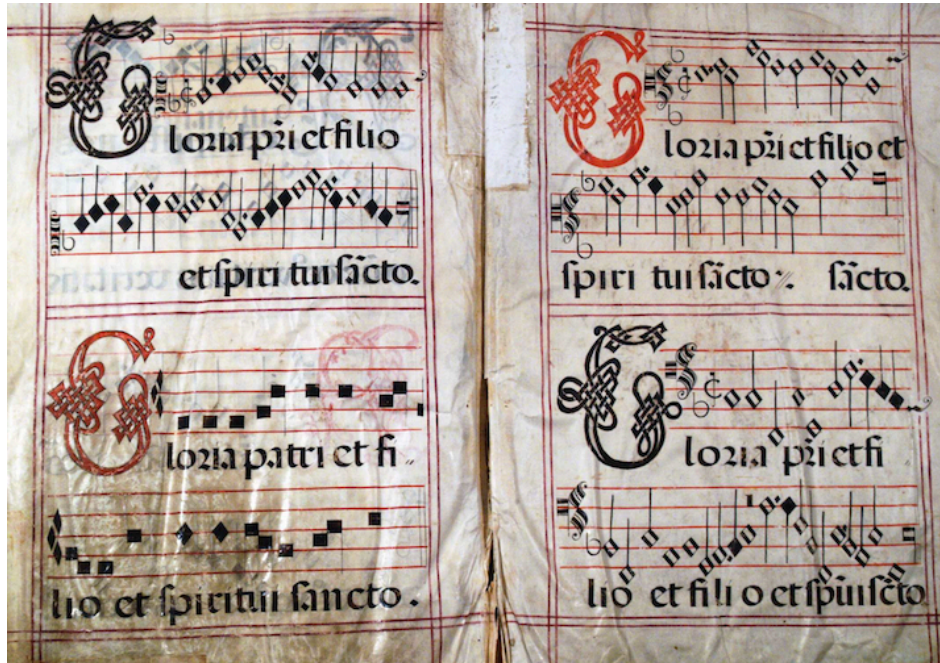 Gloria pr̃i et filio
et spiri tui sãcto.
Gloria patri et fi⸗
lio et spiritui sancto.
Gloria pr̃i et filio et
spiri tui sãcto: sãcto.
Gloria pr̃i et fi
lio et fili o et sp̃ui sc̃to